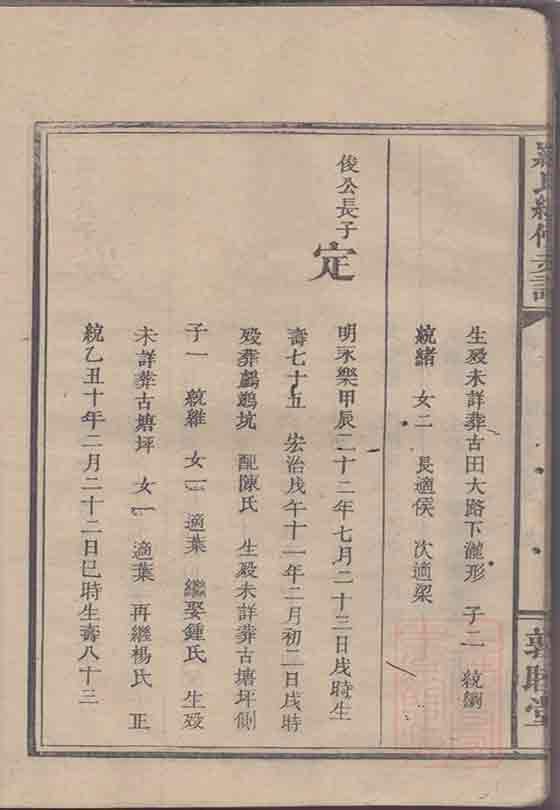 羅氏續修支譜
敦睦堂
生殁未詳葬古田大路下瀧形 子二 統劉
統緒 女二 長適侯 次適梁
俊公長子
定
明永樂甲辰二十二年七月二十三日戌時生
壽七十五 宏治戊午十一年二月初二日戌時
殁葬鷓鴣坑 配陳氏 生殁未詳葬古塘坪側
子一 統維 女一 適葉 繼娶鍾氏 生殁
未詳葬古塘坪 女一 適葉 再繼楊氏 正
統乙丑十年二月二十二日巳時生壽八十三